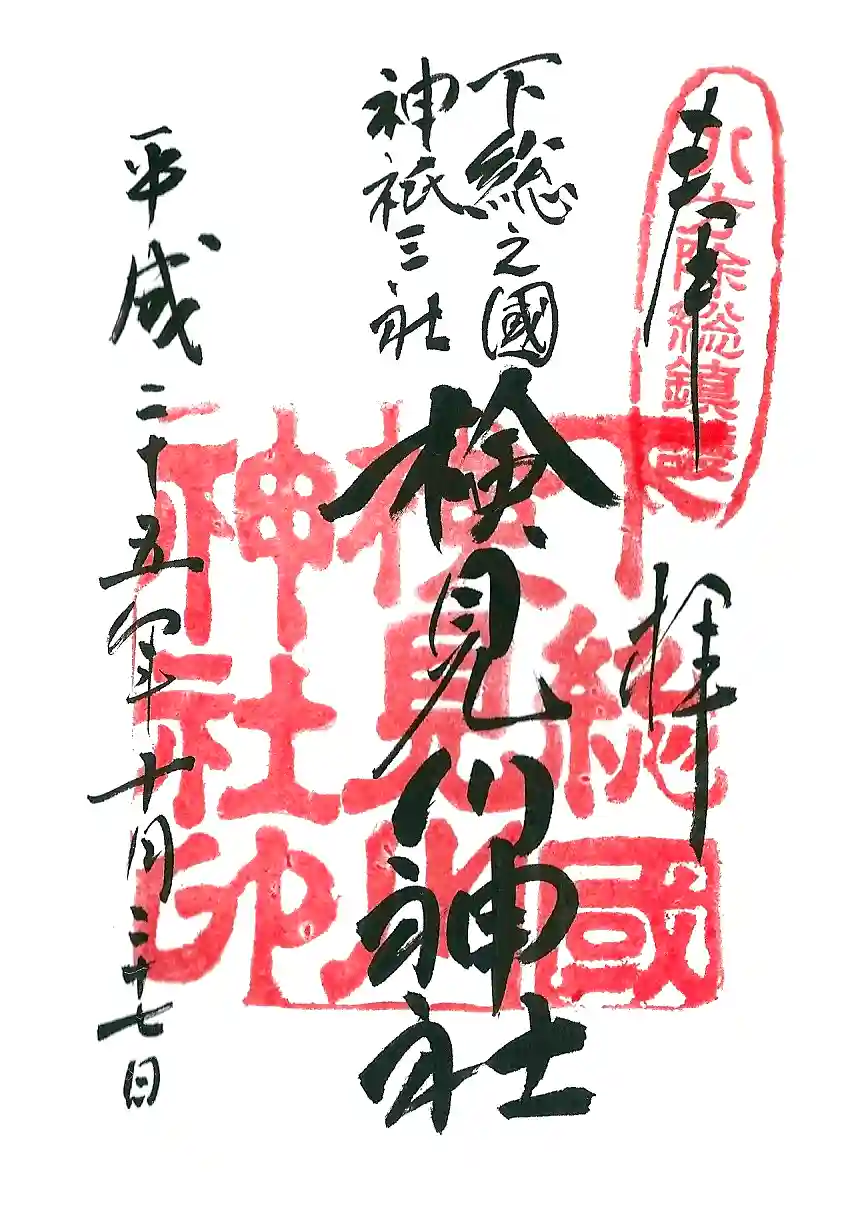 奉拝
八方除総鎮護
下総之國
神祇三社
検見川神社
下総國
検見川
神社印
平成二十五年十月二十七日